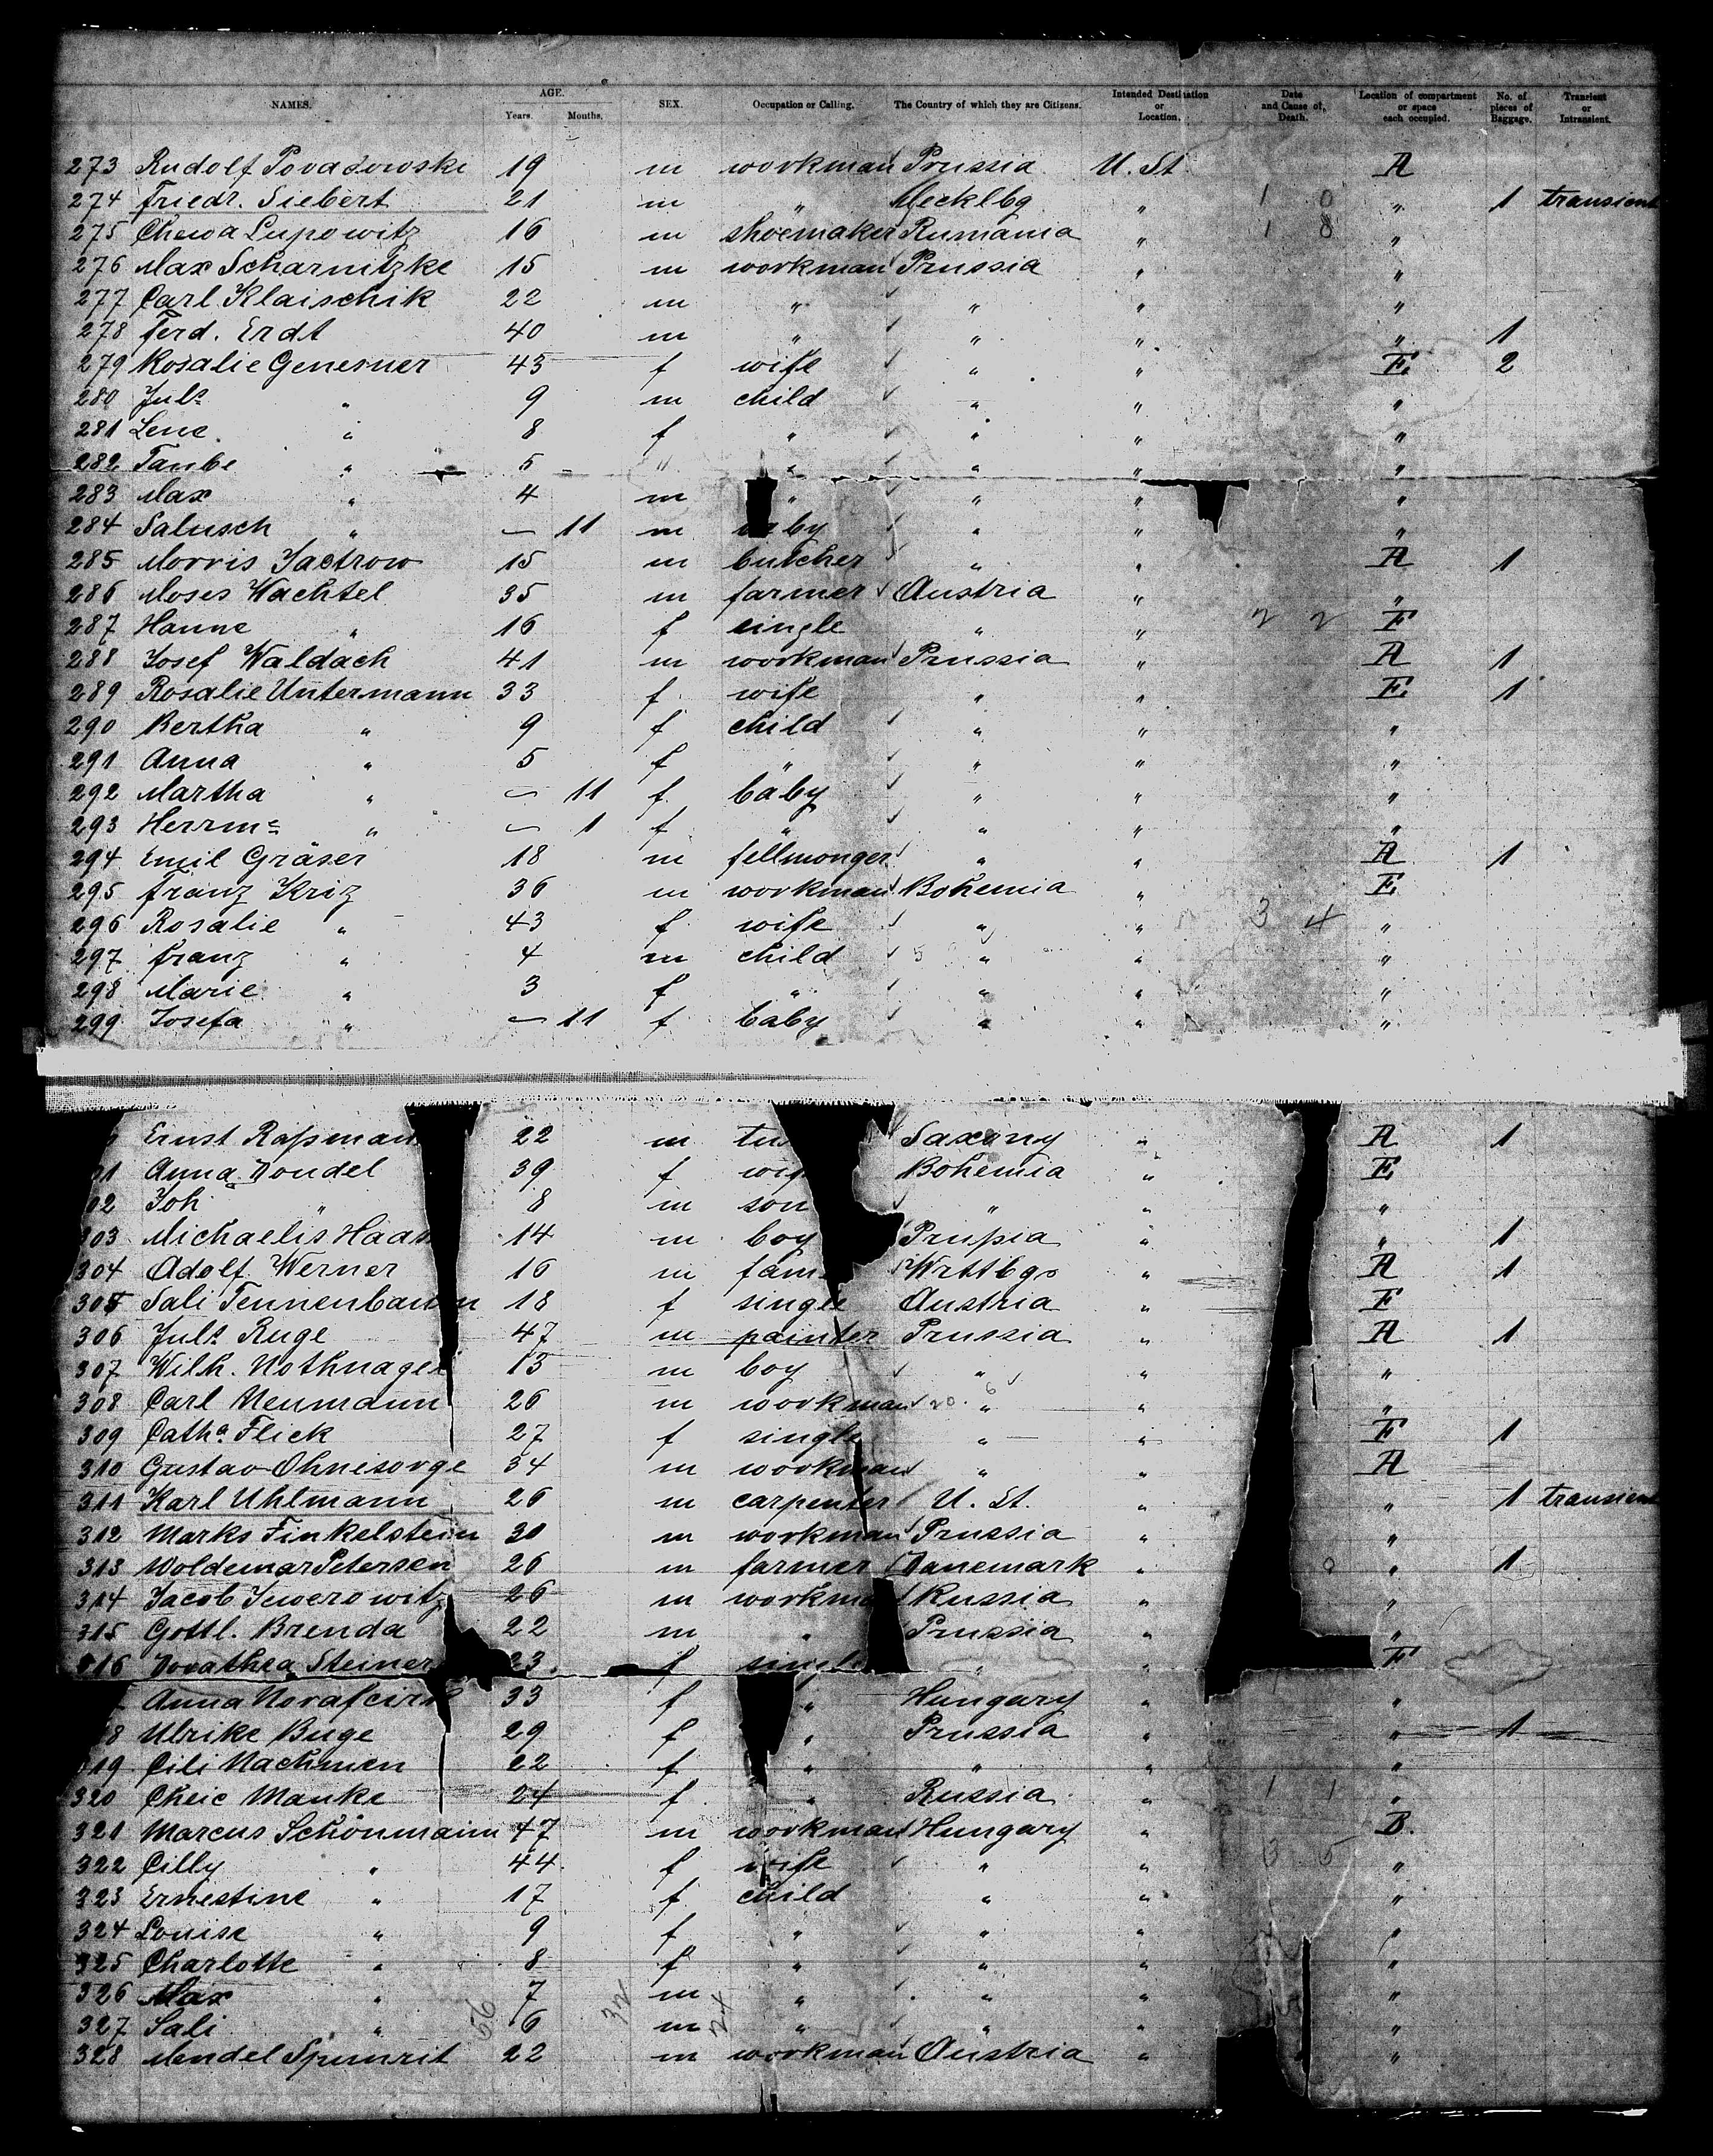 NAMES. AGE. Years. Months. SEX. Occupation or Calling. The Country of which they are Citizens. Intended Destination or Location. Date and Cause of Death. Location of compartment or space each occupied. No. of pieces of Baggage. Transient or Intransient.
273 Rudolf 19 m workman Prussia U. St. A
274 Friedr. Siebert 21 m " Mecklbg " 1 0 " 1 transient
275 Chewa Lupowitz 16 m shoemaker Rumania " 1 8 "
276 Max Scharnitzke 15 m workman Prussia " "
277 Carl Klaischik 22 m " " " "
278 Ferd. Erdt 40 m " " " " 1
279 Rosalie Genesner 43 f wife " " E. 2
280 Juls " 9 m child " " "
281 Lene " 8 f " " " "
282 Taube " 5 " " " " "
283 Max " 4 m " " " "
284 Salusch " — 11 m baby " " "
285 Morris Jactrow 15 m butcher " " A 1
286 Moses Wachtel 35 m farmer Austria " "
287 Hanne " 16 f single " " 2 2 F
288 Josef Waldach 41 m workman Prussia " A 1
289 Rosalie Untermann 33 f wife " " E. 1
290 Bertha " 9 f child " " "
291 Anna " 5 f " " " "
292 Martha " — 11 f. baby " " "
293 Herrme " — 1 f " " " "
294 Emil Gräser 18 m fellmonger " " A 1
295 Franz Kriz 36 m workman Bohemia " E.
296 Rosalie " 43 f wife " " 3 4 "
297 Franz " 4 m child " " "
298 Marie " 3 f " " " "
299 Josefa " — 11 f baby " " "
Ernst Raßman 22 m Saxony " A 1
01 Anna Doudel 39 f Bohemia " E.
02 Joh " 8 m son " " "
303 Michaelis Haas 14 m boy Prußia " " 1
304 Adolf Werner 16 m Wrttbgs " A 1
305 Sali Tennenbaum 18 f single Austria " F
306 Juls Ruge 47 m painter Prussia " A 1
307 Wilh. Nothnagel 13 m boy " " "
308 Carl Neumann 26 m workman " " "
309 Catha Flick 27 f single " " F 1
310 Gustav Ohnesorge 34 m workman " " A
311 Karl Uhlmann 26 m carpenter U. St. " " 1 transient
312 Marks Finkelstein 30 m workman Prussia " "
313 Woldemar Petersen 26 m farmer Danemark " " 1
314 Jacob Juwerowitz 26 m workman Russia " "
315 Gottl. Brenda 22 m " Prussia " "
316 Dorathea Steiner 23 f single " " F
Anna 33 f " Hungary " "
8 Ulrike Buge 29 f " Prussia " " 1
319 Cili Nachmen 22 f " " " "
320 Cheie Manke 24 f " Russia " 1 1 "
321 Marcus Schönmann 47 m workman Hungary " B.
322 Cilly " 44 f wife " " 3 5 "
323 Ernestine " 17 f child " " "
324 Louise " 9 f " " " "
325 Charlotte " 8 f " " " "
326 Max " 7 m " " " "
327 Sali " 6 m " " " "
328 Mendel 22 m workman Austria " "
56 32 24